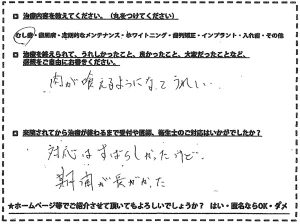 治療内容を教えてください。(丸をつけてください)
むし歯・歯周病・定期的なメンテナンス・ホワイトニング・歯列矯正・インプラント・入れ歯・その他
治療を終えられて、うれしかったこと、良かったこと、大変だったことなど、
感想をご自由にお書きください。
肉が喰えるようになってうれしい…
来院されてから治療が終わるまで受付や医師、衛生士のご対応はいかがでしたか?
対応はすばらしかったけど
期間が長がかった
★ホームページ等でご紹介させて頂いてもよろしいでしょうか? はい・匿名ならOK・ダメ